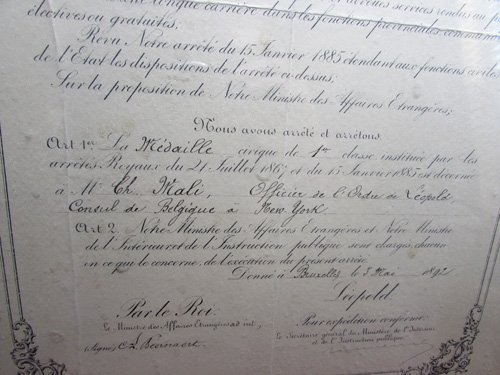 carrière dans les fonctions provinciales communales
électives ou gratuites;
Revu Notre arrêté du 15 Janvier 1885 étendant aux fonctions civiles
de l'Etat les dispositions de l'arrêté ci-dessus;
Sur la proposition de Notre Ministre des Affaires Etrangères;
Nous avons arrêté et arrêtons:
Art 1er La Médaille civique de 1re classe instituée par les
arrêtés Royaux du 21 Juillet 1867 et du 15 Janvier 1885 est décernée
à Mr Ch. Mali, Officier de l'Ordre de Léopold,
Consul de Belgique à New York
Art 2. Notre Ministre des Affaires Etrangères et Notre Ministre
de l'Intérieur et de l'Instruction publique sont chargés, chacun
en ce qui le concerne, de l'exécution du présent arrêté.
Donné à Bruxelles, le 3 Mai 1892
Léopold
Par le Roi:
Le Ministre des Affaires Etrangères ad int.
(signé)
Pour expédition conforme:
Le Secrétaire général du Ministère de l'Intérieur
et de l'Instruction publique,